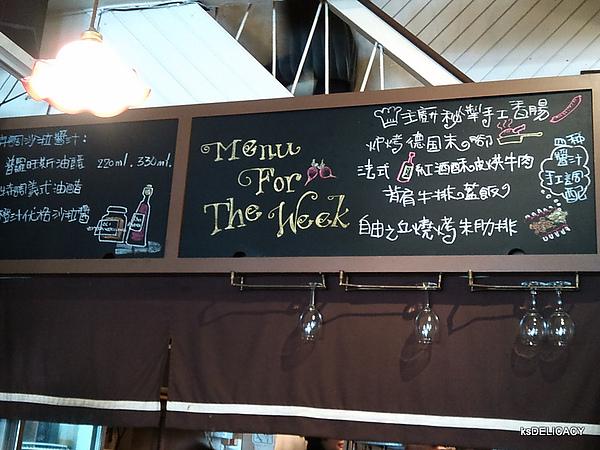 沙拉醬汁:
普羅旺斯油醋 220ml. 330ml.
義式油醋
優格沙拉醬
Menu
For
The Week
主廚秘製手工香腸
炉烤德国末腳
法式紅酒酥皮烘牛肉
背肩牛排蓋飯
自由之丘燒烤朱肋排
四種
醬汁
手工調
配
ksDELICACY